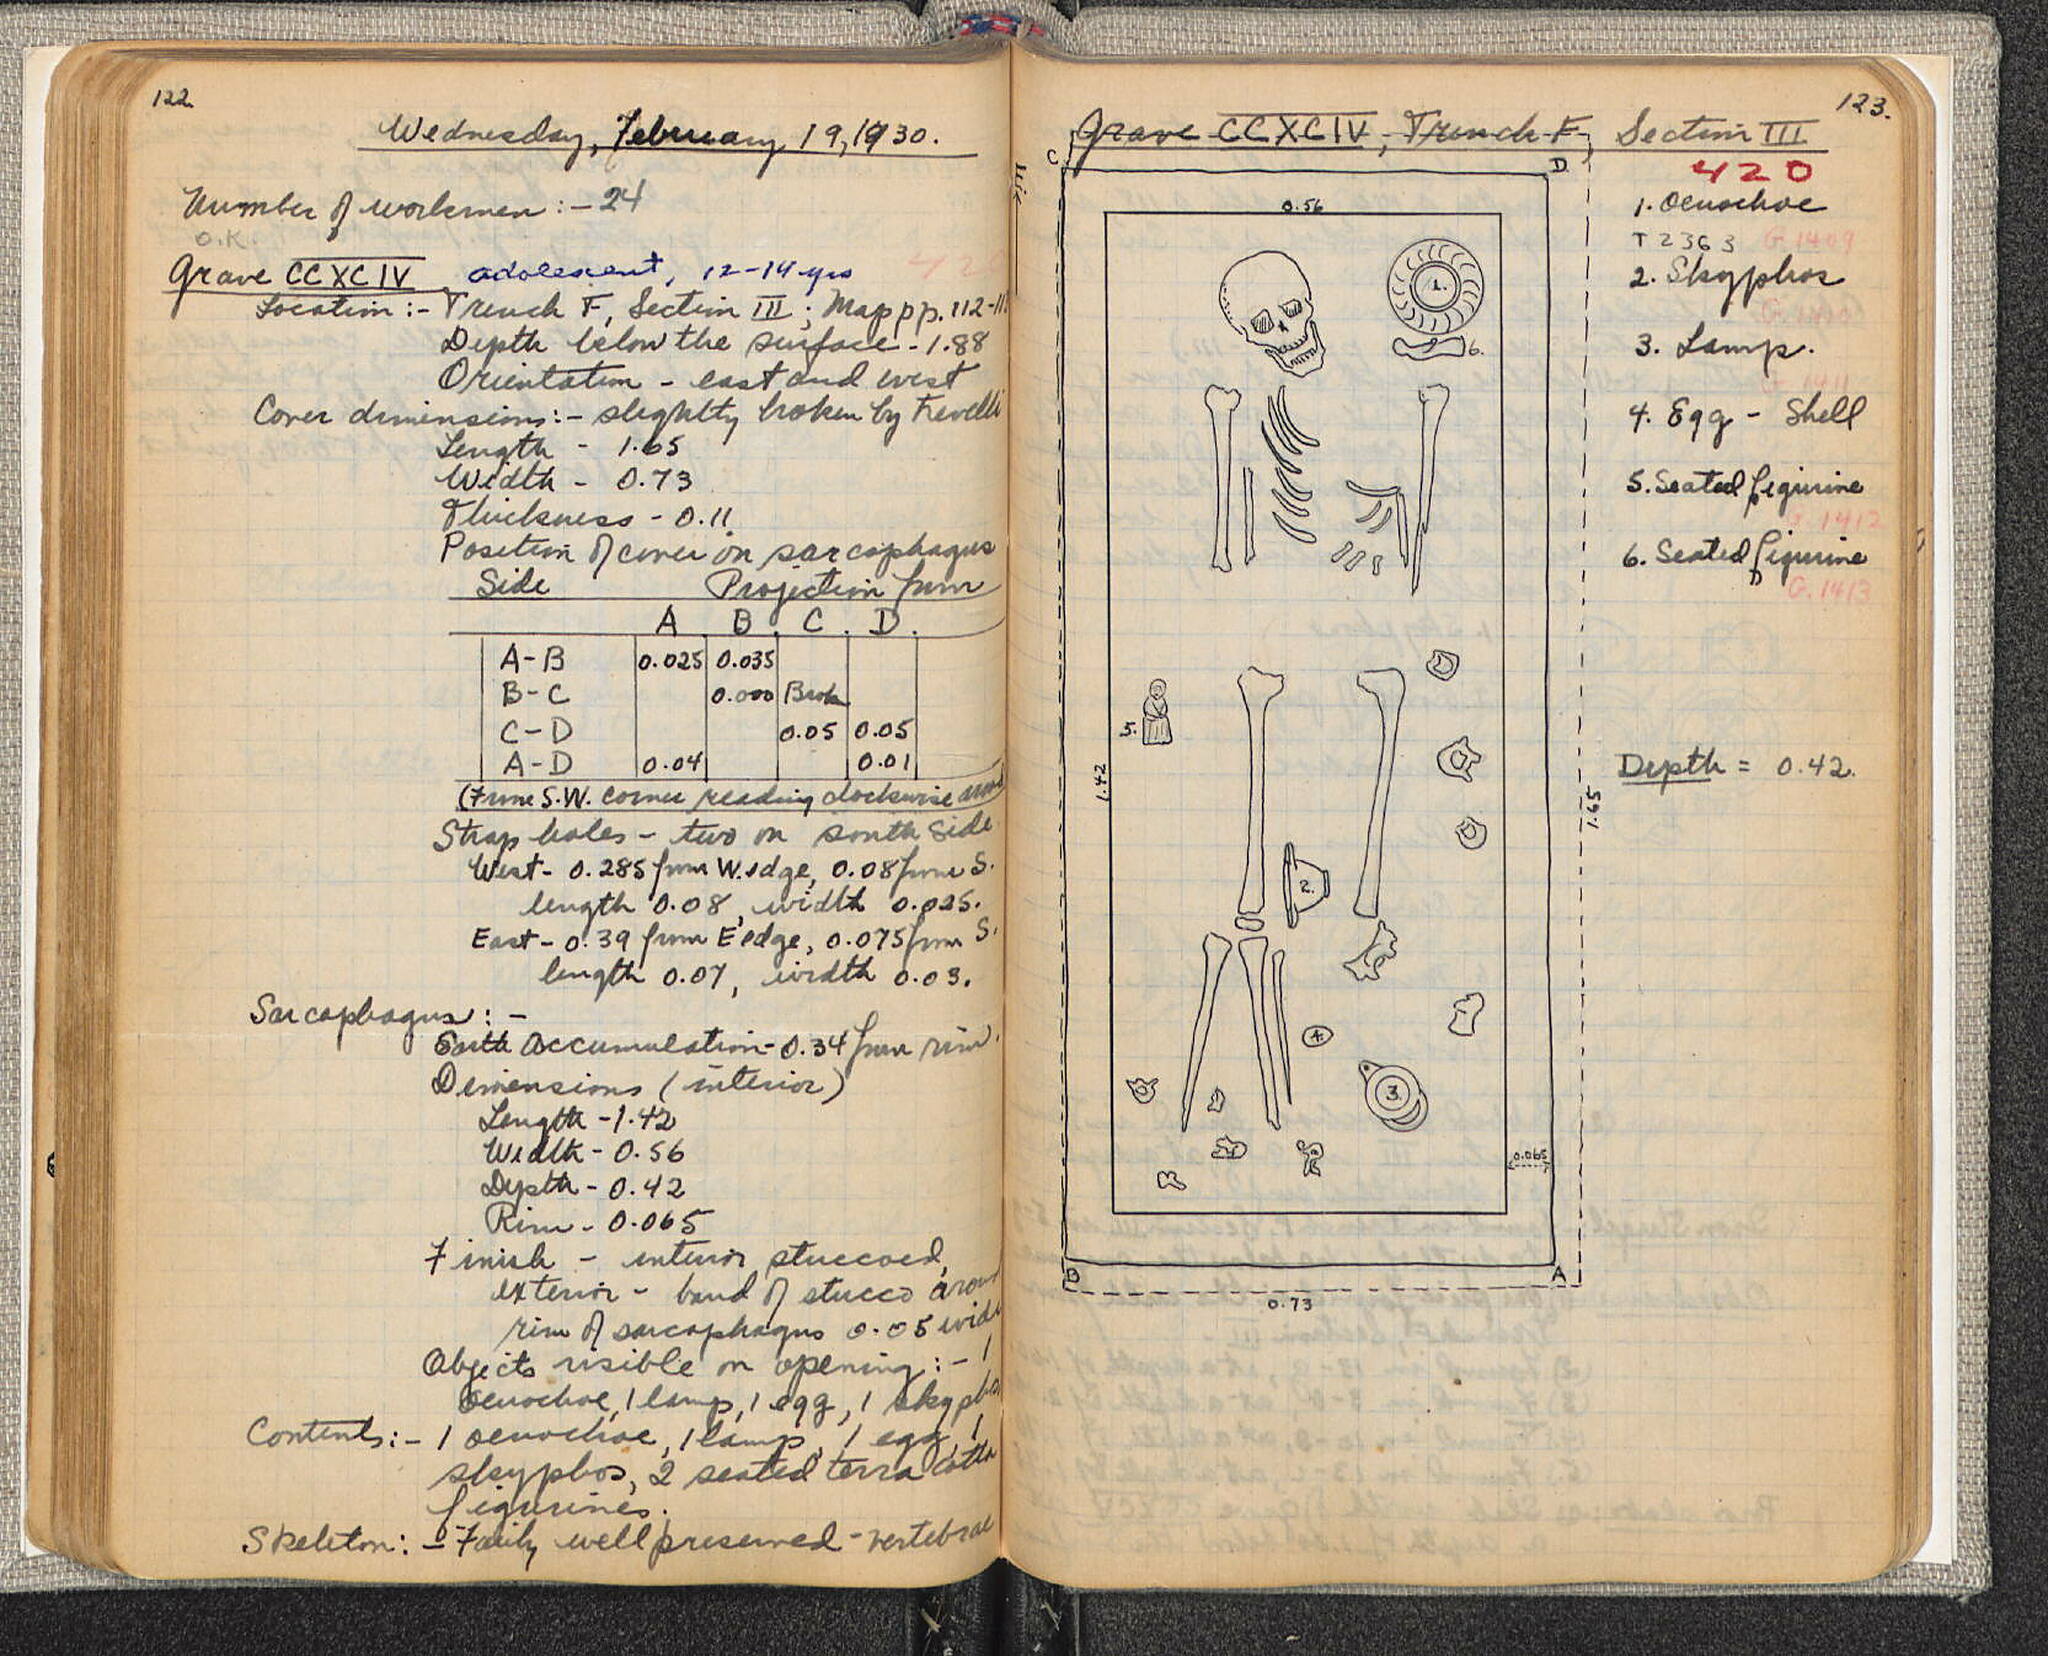 122.
Wednesday, February 19, 1930.
Number of workmen :- 24
O.K.
Grave CCXCIV adolescent, 12-14 yrs 420
Location :- Trench F, Section III ; Map pp. 112-11
Depth below the surface - 1.88
Orientation - east and west
Cover dimensions :- slightly broken by
Length - 1.65
Width - 0.73
Thickness - 0.11
Position of cover on sarcophagus
Side Projection from
A B C D
A-B 0.025 0.035
B-C 0.000 Brok
C-D 0.05 0.05
A-D 0.04 0.01
(From S.W. corner reading clockwise
Strap holes - two on south side
West - 0.285 from W. edge, 0.08 from S.
length 0.08, width 0.025.
East - 0.39 from E edge, 0.075 from S.
length 0.07, width 0.03.
Sarcophagus :-
Earth Accumulation - 0.34 from rim.
Dimensions (interior)
Length - 1.42
Width - 0.56
Depth - 0.42
Rim - 0.065
Finish - interior stuccoed,
exterior - band of stucco aroun
rim of sarcophagus 0.05 wide
Objects visible on opening :- 1
oenochoe, 1 lamp, 1 egg, 1 skypho
Contents :- 1 oenochoe, 1 lamp, 1 egg, 1
skyphos, 2 seated terra cotta
figurines.
Skeleton :- Fairly well preserved - vertebrae
123.
Grave CCXCIV, Trench F, Section III
420
C D
0.56
1.
6.
5.
1.42
1.65
2.
4.
3.
0.065
B A
0.73
1. Oenochoe
T 2363 G.1409
2. Skyphos
G.1410
3. Lamp.
G.1411
4. Egg - Shell
5. Seated figurine
G.1412
6. Seated figurine
G.1413
Depth = 0.42.